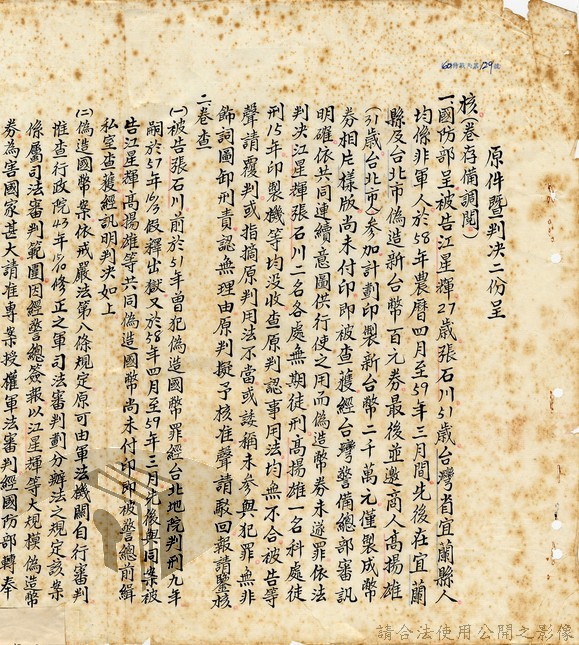 60特觀內簽129號
原件暨判決二份呈
核(卷存備調閱)
一國防部呈被告江星輝27歲張石川51歲台灣省宜蘭縣人
均係非軍人於58年農曆四月至59年三月間先後在宜蘭
縣及台北市偽造新台幣百元券最後並邀商人髙揚雄
(31歲台北市人)參加計劃印製新台幣二千萬元僅製成幣
券相片樣版尚未付印即被查獲經台灣警備總部審訊
明確依共同連續意圖供行使之用而偽造幣券未遂罪依法
判决江星輝張石川二名各處無期徒刑髙揚雄一名科處徒
刑15年印製機等均没收查原判認事用法均無不合被告等
聲請覆判或指摘原判用法不當或諉稱未參與犯罪無非
飾詞圖卸刑責認無理由原判擬予核准聲請駁回報請鑒核
二卷查
㈠被告張石川前於51年曾犯偽造國幣罪經台北地院判刑九年
嗣於57年10/3假釋出獄又於58年四月至59年三月先後與同案被
告江星輝髙揚雄等共同偽造國幣尚未付印即被警總前緝
私室查獲經訊明判决如上
㈡偽造國幣案依戒嚴法第八條規定原可由軍法機關自行審判
惟查行政院43年10/10修正之軍司法審判劃分辦法之規定該案
係屬司法審判範圍因經警總簽報以江星輝等大規模偽造幣
券為害國家甚大請准專案授權軍法審判經國防部轉奉
請合法使用公開之影像